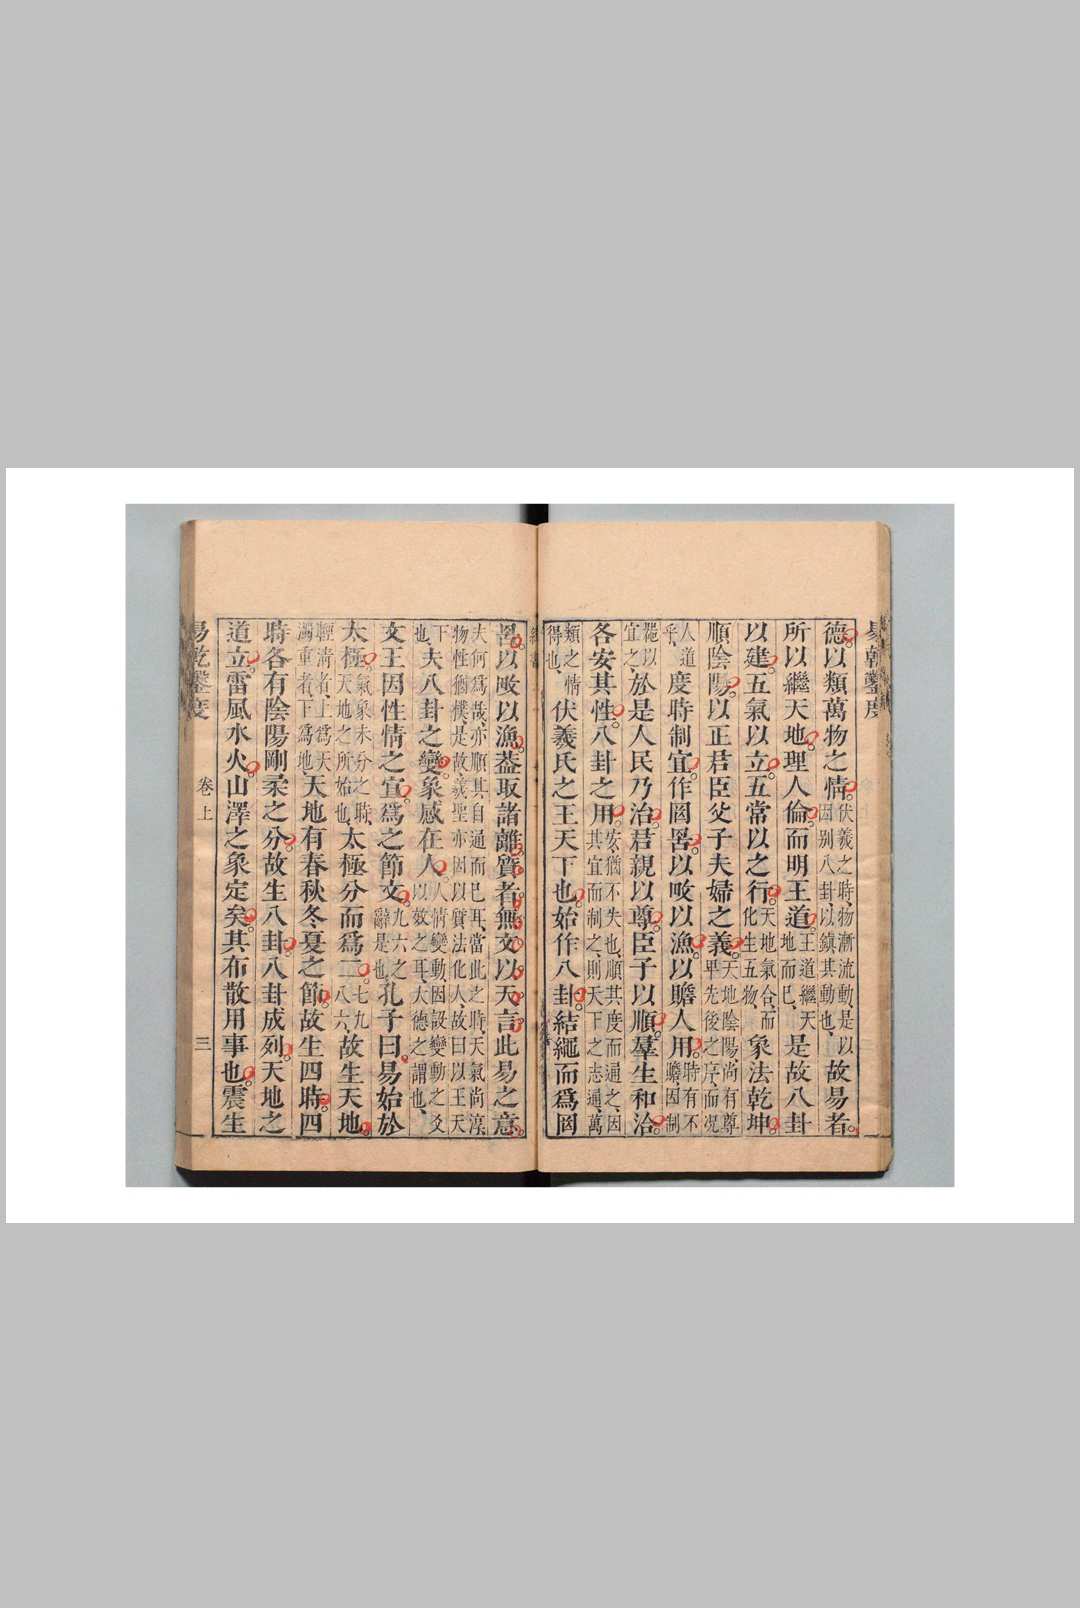 德以類萬物之情伏羲之時物漸流動是以因別八卦以鎮其動也故易者
所以繼天地理人倫而明王道王道繼天地而巳是故八卦
以建五氣以立五常以之行天地氣合而化生五物象法乾坤
順陰陽以正君臣父子夫婦之義天地陰陽尚有尊卑先後之序而况
人道乎度時制宜作罔罟以畋以漁以贍人用時有不贍因制
罷以宜之於是人民乃治君親以尊臣子以順羣生和洽
各安其性八卦之用安猶不失也順其度而通之因其宜而制之則天下之志通萬
類之情得也伏羲氏之王天下也始作八卦結繩而爲罔
罟以畋以漁葢取諸離質者無文以天言此易之意
夫何爲哉亦順其自通而巳耳當此之時天氣尚淳
物性猶樸是故羲聖亦因以質法化人故曰以王天
下也夫八卦之變象感在人人情變動因設變動之爻以效之耳大德之謂也
文王因性情之宜爲之節文九六之辭是也孔子曰易始於
太極氣象未分之時天地之所始也太極分而爲二七九八六故生天地
輕清者上爲天濁重者下爲地天地有春秋冬夏之節故生四時四
時各有陰陽剛柔之分故生八卦八卦成列天地之
道立雷風水火山澤之象定矣其布散用事也震生
易乾鑿度
卷上
三